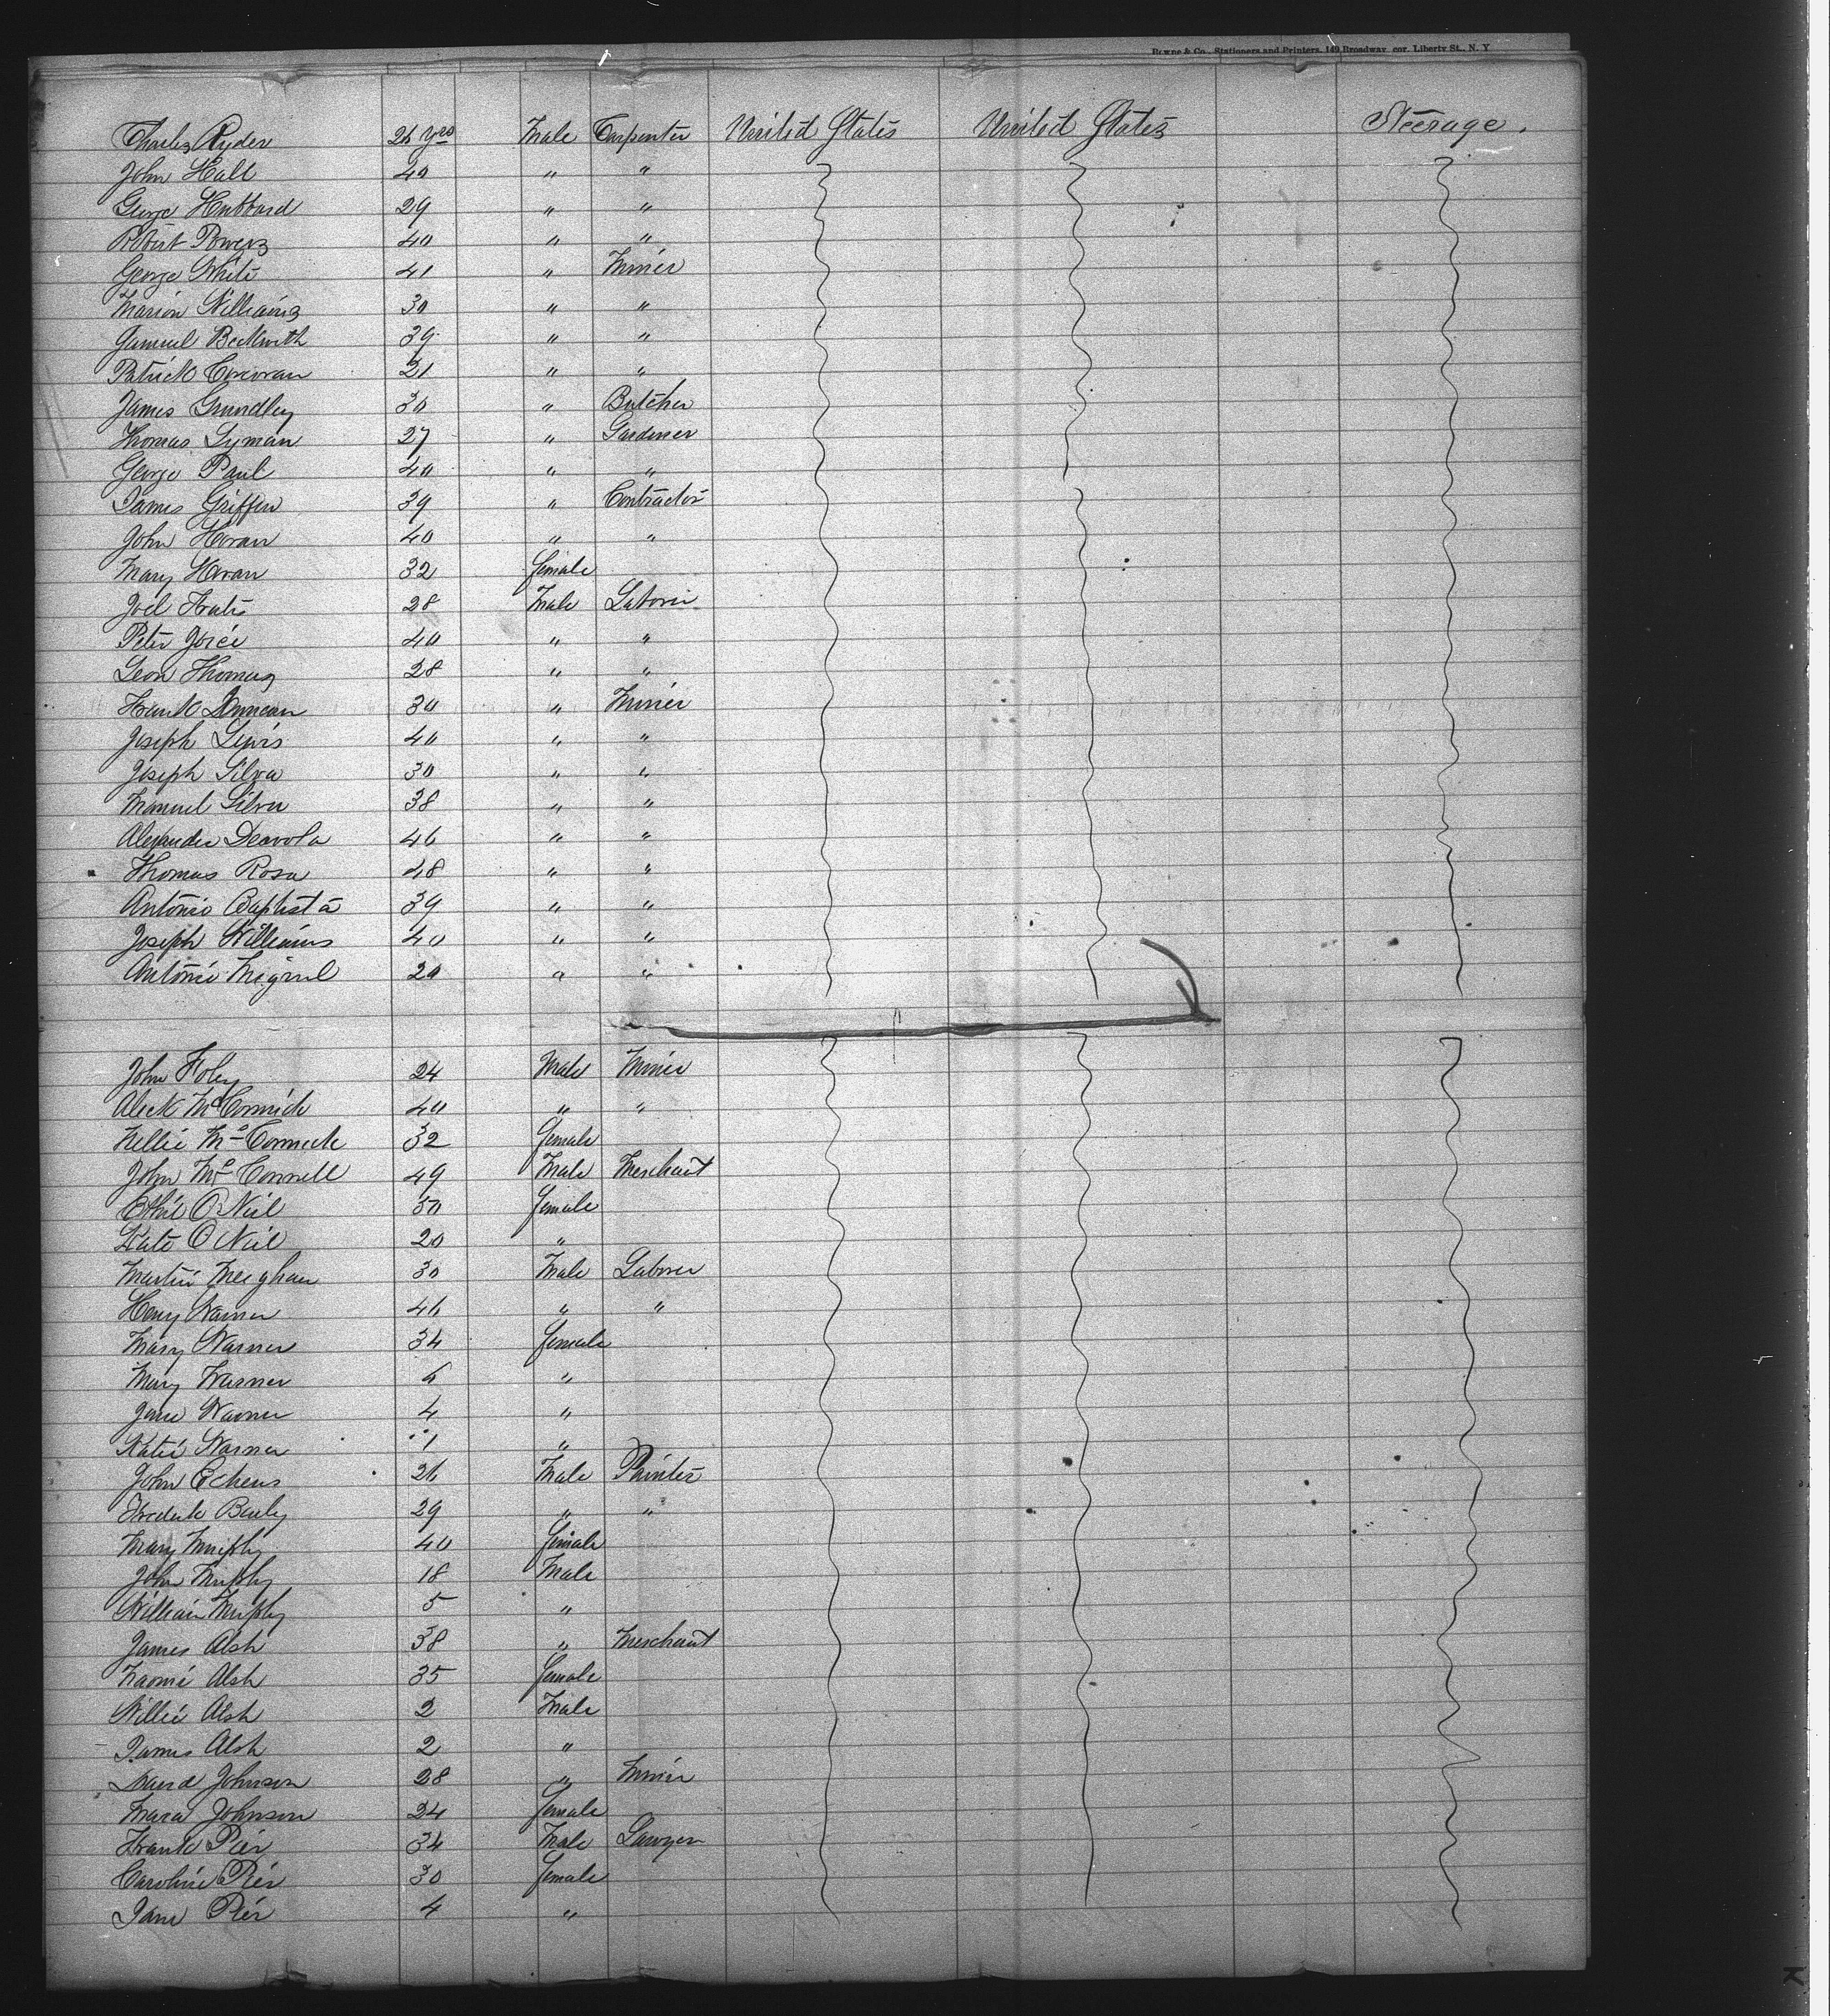 Bowne & Co., Stationers and Printers, 149 Broadway, cor. Liberty St., N. Y
Charles Ryder 26 yrs Male Carpenter United States United States Steerage.
John Hall 40 " "
George Hubbard 29 " "
Robert Powers 40 " "
George White 41 " Miner
Marion Williams 30 " "
Samuel Beckwith 39 " "
Patrick Corcoran 21 " "
James Grundley 30 " Butcher
Thomas Lyman 27 " Gardener
George Paul 40 " "
James Griffin 39 " Contractor
John Horan 40 " "
Mary Horan 32 female
Joel 28 Male Laborer
Peter Joice 40 " "
Leon Thomas 28 " "
Frank Duncan 30 " Miner
Joseph Lewis 40 " "
Joseph Silva 30 " "
Manuel Silva 38 " "
Alexander Deavola 46 " "
Thomas Rosa 48 " "
Antonio Baptista 39 " "
Joseph Williams 40 " "
Antonio Migual 20 " "
John Foley 24 Male Miner
Aleck McCormick 40 " "
Nellie McCormick 32 female
John McConnell 49 Male Merchant
Ethil O Neil 50 female
Kate O Neil 20 "
Martin Meighan 30 Male Laborer
Henry Warner 46 " "
Mary Warner 34 female
Mary Warner 6 "
Jane Warner 4 "
Katie Warner 1 "
John 26 Male Painter
29 " "
Mary Murphy 40 female
John Murphy 18 Male
William Murphy 5 "
James Alsh 38 " Merchant
Naomi Alsh 35 female
Willie Alsh 2 Male
James Alsh 2 "
Johnson 28 " Miner
Johnson 24 female
Frank Pier 34 Male Lawyer
Caroline Pier 30 female
Jane Pier 4 "